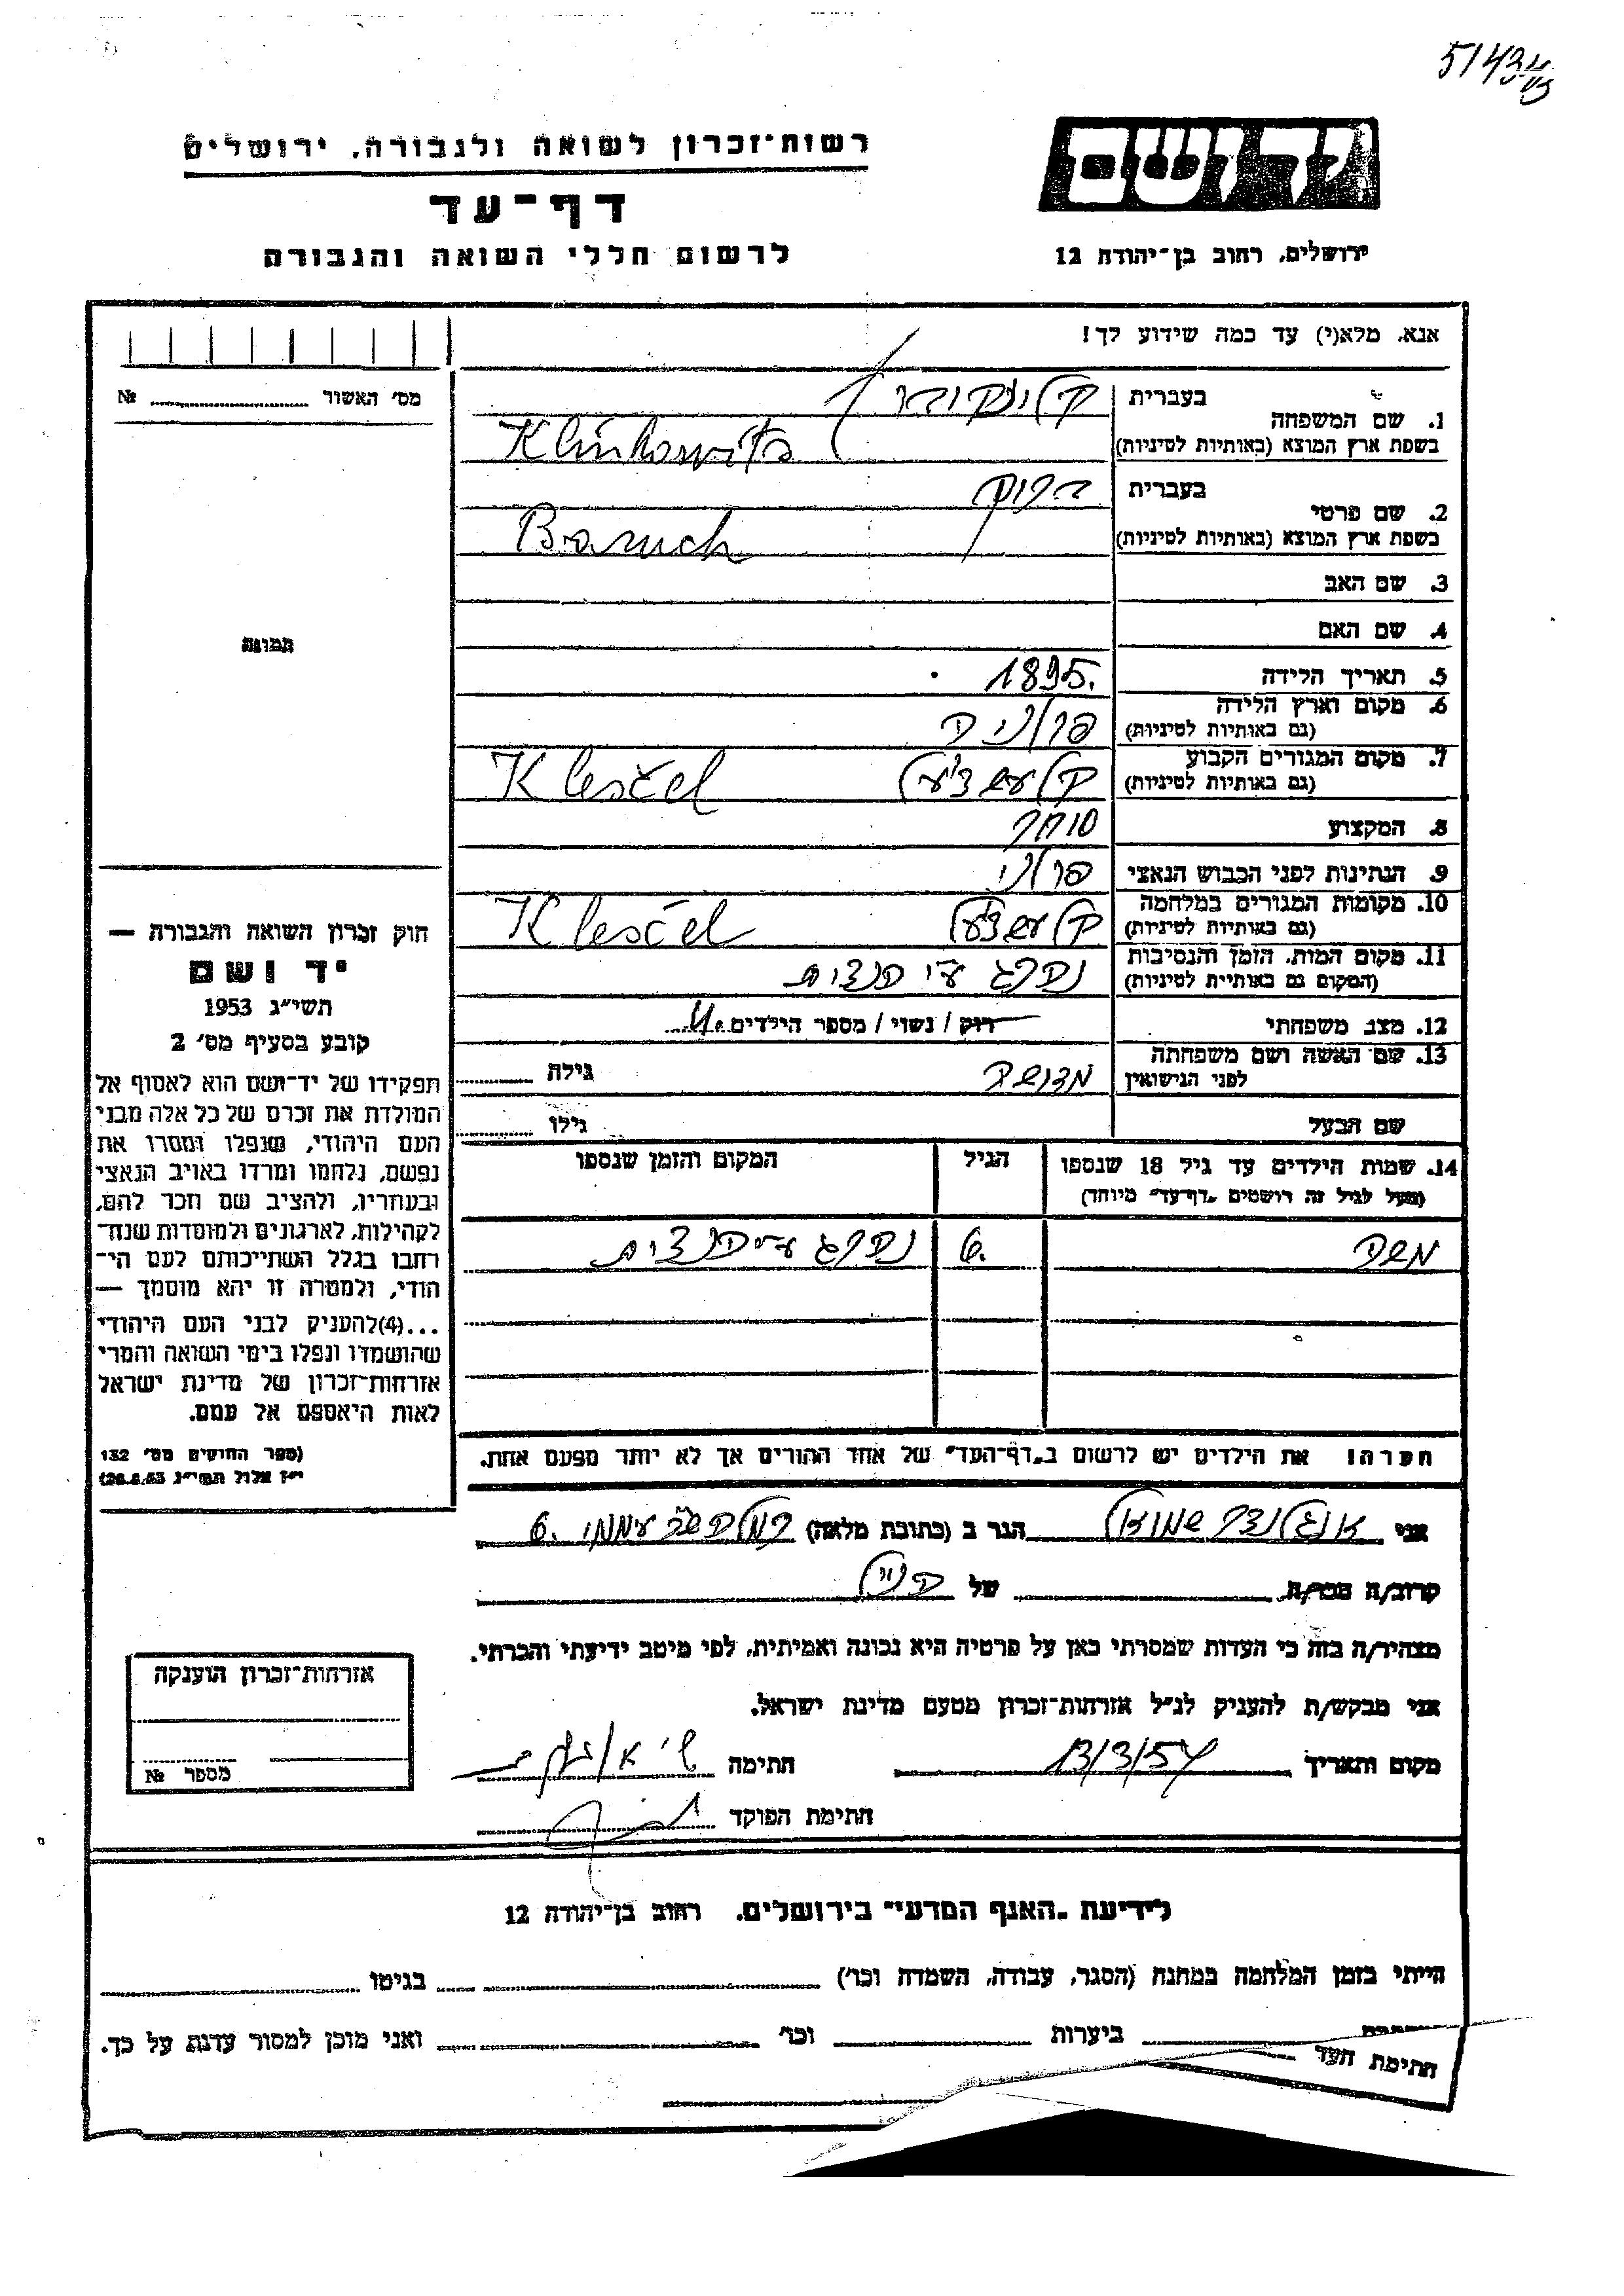 51434
רשות־זכרון לשואה ולגבורה, ירושלים
דף־עד
לרשום חללי השואה והגבורה
יד ושם
ירושלים, רחוב בן־יהודה 12
אנא, מלא(י) עד כמה שידוע לך!
מס׳ האשור № 
1. שם המשפחה
בעברית
בשפת ארץ המוצא (באותיות לטיניות) Klinkowits
2. שם פרטי
בעברית ברוך
בשפת ארץ המוצא (באותיות לטיניות) Baruch
3. שם האב
4. שם האם
5. תאריך הלידה 1895.
6. מקום וארץ הלידה
(גם באותיות לטיניות) פולניה
7. מקום המגורים הקבוע
(גם באותיות לטיניות) Klesčel
8. המקצוע סוחר
9. הנתינות לפני הכבוש הנאצי פולני
10. מקומות המגורים במלחמה
(גם באותיות לטיניות) Klesčel
11. מקום המות, הזמן והנסיבות
(המקום גם באותיות לטיניות) נהרג ע״י הנצים
12. מצב משפחתי רוק / נשוי / מספר הילדים 4.
13. שם האשה ושם משפחתה
לפני הנישואין גילה
שם הבעל גילו
14. שמות הילדים עד גיל 18 שנספו
(מעל לגיל זה רושמים „דף־עד״ מיוחד)
הגיל
המקום והזמן שנספו
משה 6. נהרג ע״י הנצים
תמונה
חוק זכרון השואה והגבורה —
יד ושם
תשי״ג 1953
קובע בסעיף מס׳ 2
תפקידו של יד־ושם הוא לאסוף אל
המולדת את זכרם של כל אלה מבני
העם היהודי, שנפלו ומסרו את
נפשם, נלחמו ומרדו באויב הנאצי
ובעוזריו, ולהציב שם וזכר להם,
לקהילות, לארגונים ולמוסדות שנח־
רחבו בגלל השתייכותם לעם הי־
הודי, ולמטרה זו יהא מוסמך —
...(4) להעניק לבני העם היהודי
שהושמדו ונפלו בימי השואה והמרי
אזרחות־זכרון של מדינת ישראל
לאות היאספם אל עמם.
(ספר החוקים מס׳ 132
י״ז אלול תשי״ג 28.8.53)
הערה! את הילדים יש לרשום ב„דף־העד״ של אחד ההורים אך לא יותר מפעם אחת.
אני שמואל הגר ב (כתובת מלאה) עממי 6.
קרוב/ה מכר/ה של הנ״ל
מצהיר/ה בזה כי העדות שמסרתי כאן על פרטיה היא נכונה ואמיתית, לפי מיטב ידיעתי והכרתי.
אני מבקש/ת להעניק לנ״ל אזרחות־זכרון מטעם מדינת ישראל.
מקום ותאריך 13/3/54 חתימה
חתימת הפוקד
אזרחות־זכרון הוענקה
מספר №
לידיעת „האגף המדעי״ בירושלים, רחוב בן־יהודה 12
הייתי בזמן המלחמה במחנה (הסגר, עבודה, השמדה וכו׳) בגיטו
ביערות וכו׳ ואני מוכן למסור עדות על כך.
חתימת העד